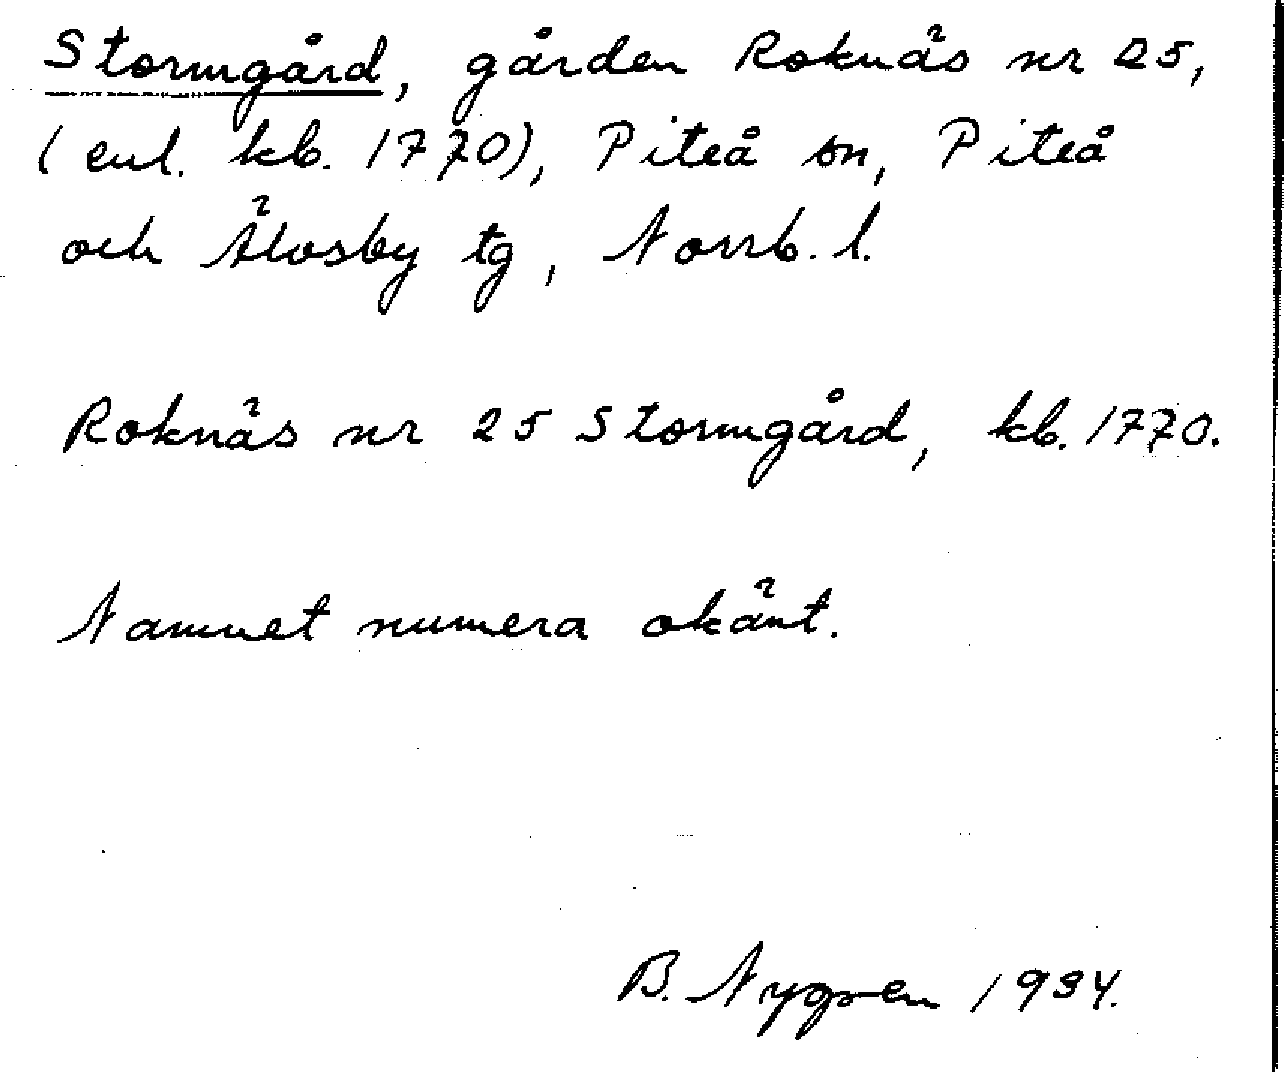 Stormgård, gården Roknäs nr 25,
(enl. kb. 1770), Piteå sn, Piteå
och Älvsby tg, Norrb. l.
Roknäs nr 25 Stormgård, kb. 1770.
Namnet numera okänt.
B. Nygren 1934.